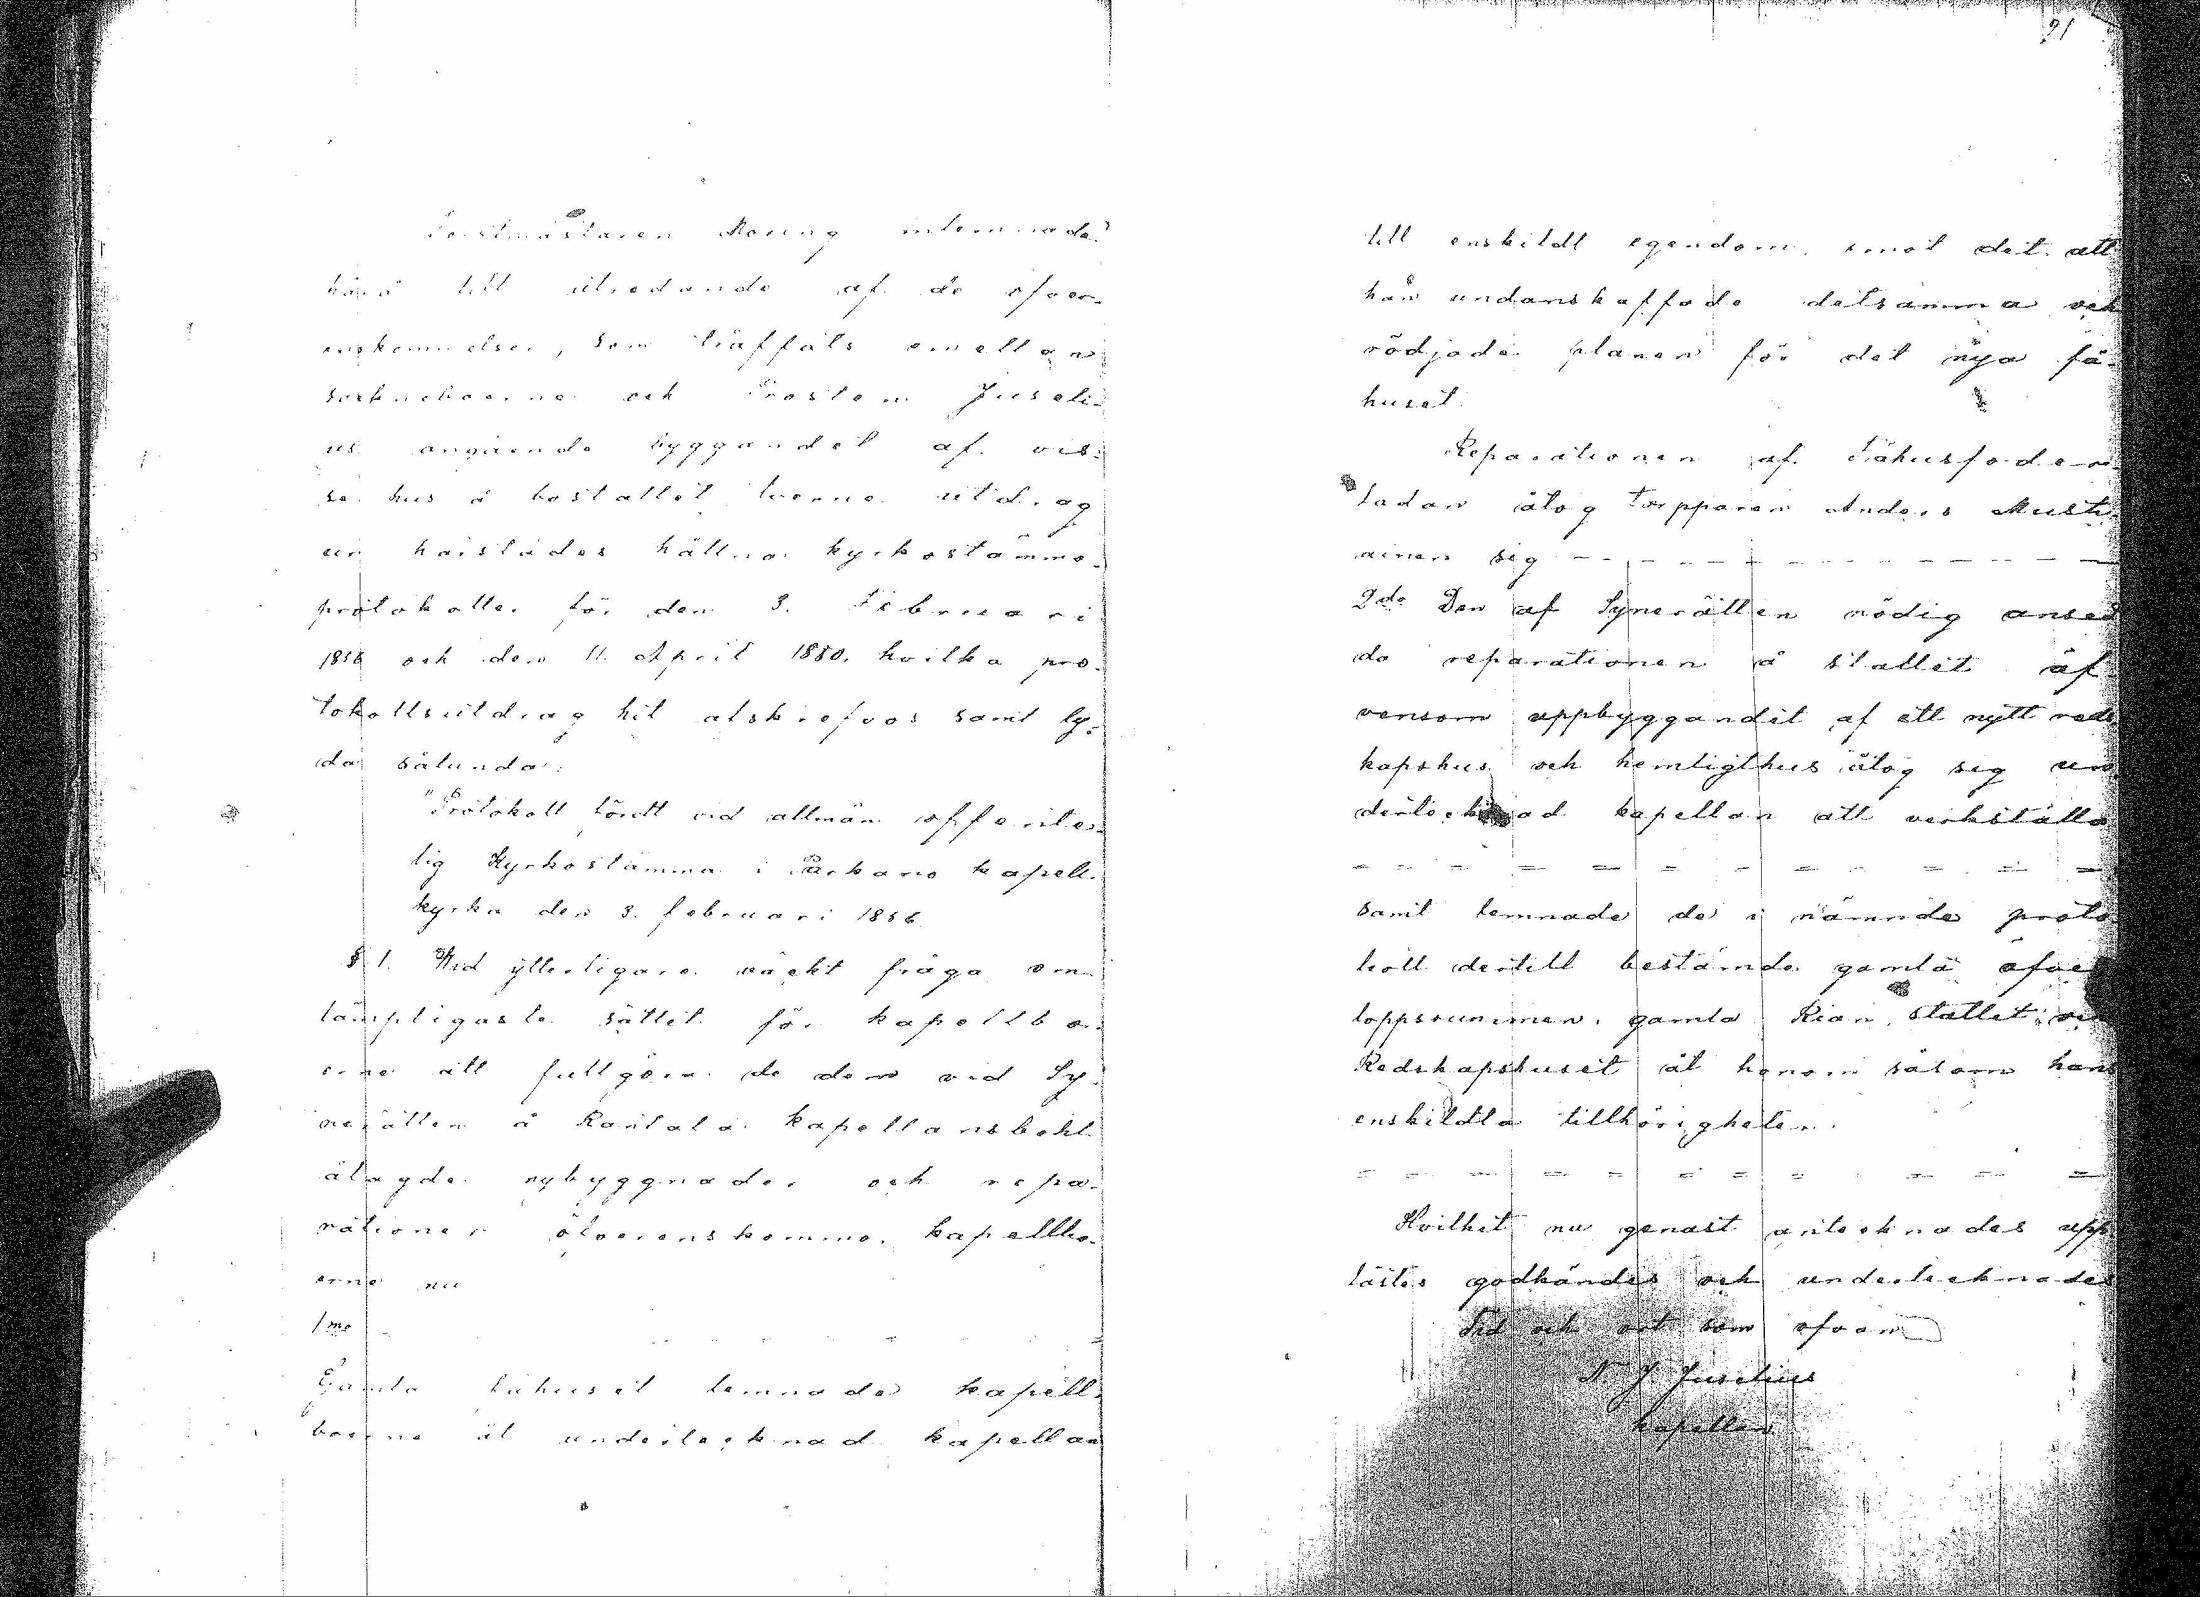 Forstmästaren Moring inlemnade
härå till utredande af de öfver-
enskommelser, som träffats emellan
sockneboerne och Prosten Juseli-
us angående byggandet af vis-
sa hus å bostället tvenne utdrag
ur härstädes hållna kyrkostämmo-
protokoller för den 3. Februari
1856 och den 11. April 1880. hvilka pro-
tokollsutdrag hit afskrefvos samt ly-
da sålunda:
"Protokoll fördt vid allmän offente-
lig Kyrkostämma i Parkano kapell-
kyrka den 3. februari 1856
§ 1. Wid ytterligare väckt fråga om
lämpligaste sättet för kapellbo-
erne att fullgöra de dem vid Sy-
nerätten å Rantala kapellansbohl
ålagde nybyggnader och repa-
rationer öfverenskommo. kapellbo-
erne nu
1mo
Gamla fähuset lemnade kapell-
boerne åt undertecknad kapellan
91
till enskildt egendom, emot det att
han undanskaffade detsamma och
rödjade planen för det nya fä-
huset.
Reparationen af Fähusfoder-
ladan åtog torpparen Anders Musti-
ainen sig - - - - - - - - - -
2do Den af Synerätten nödig ansed
da reparationen å stallet äf
vensom uppbyggandet af ett nytt red
kapshus och hemligthus åtog seg un
dertecknad kapellan att verkställa
= = = = = = = = = = = =
samt lemnade de i nämnde proto
koll dertill bestämde gamla öfver
loppsrummen. gamla Rian, stallet och
Redskapshuset åt honom såsom hans
enskildta tillhörigheter.
= = = = = = = = = = = =
Hvilket nu genast antecknades upp
lästes godkändes och undertecknades
Tid och ort som ofvan
N J Juselius
kapellan